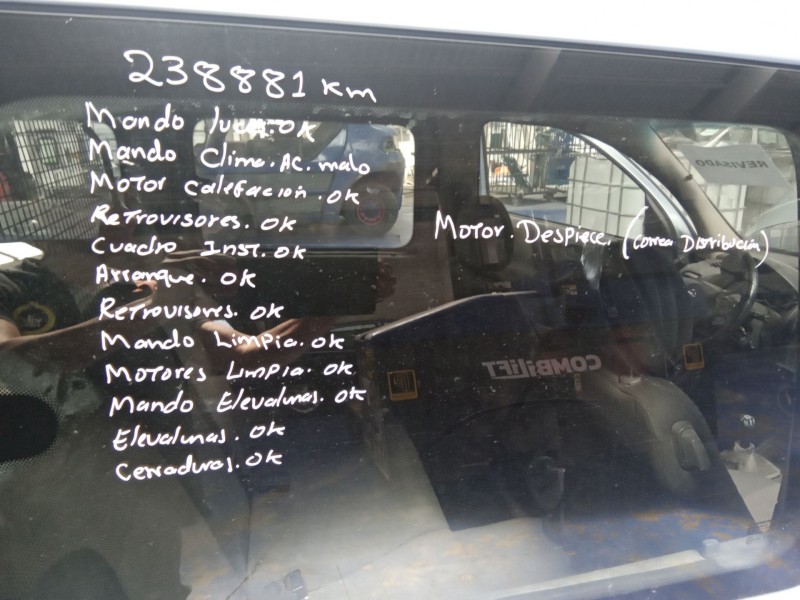 238881 km
Mando luces.OK
Mando Clima.AC.malo
Motor Calefacion.OK
Retrovisores.OK
Cuadro Inst.OK
Arranque.OK
Retrovisores.OK
Mando Limpia.OK
Motores Limpia.OK
Mando Elevalunas.OK
Elevalunas.OK
Cerraduras.OK
Motor.Despiece.(Correa Distribución)
REVISADO
COMBiLiFT